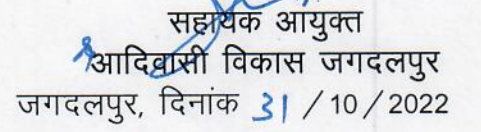 सहायक आयुक्त
आदिवासी विकास जगदलपुर
जगदलपुर, दिनांक 31 / 10 / 2022